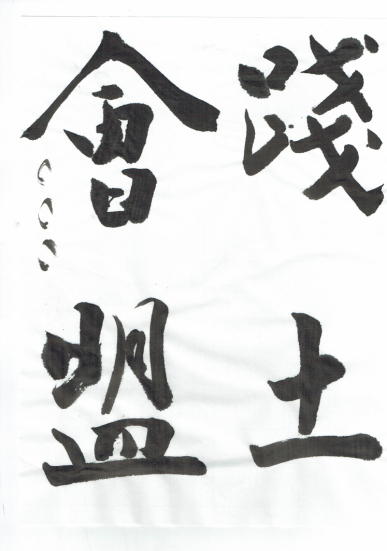 踐土
會盟